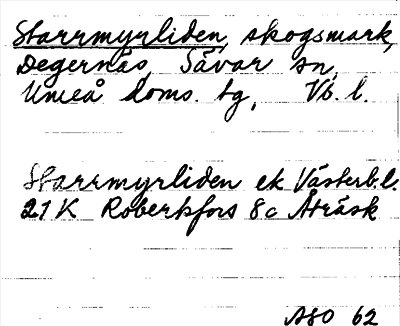 Starrmyrliden, skogsmark,
Degernäs, Sävar sn,
Umeå doms. tg, Vb. l.
Starrmyrliden ek Västerb.l.
21 K Robertsfors 8c Åträsk
ASO 62